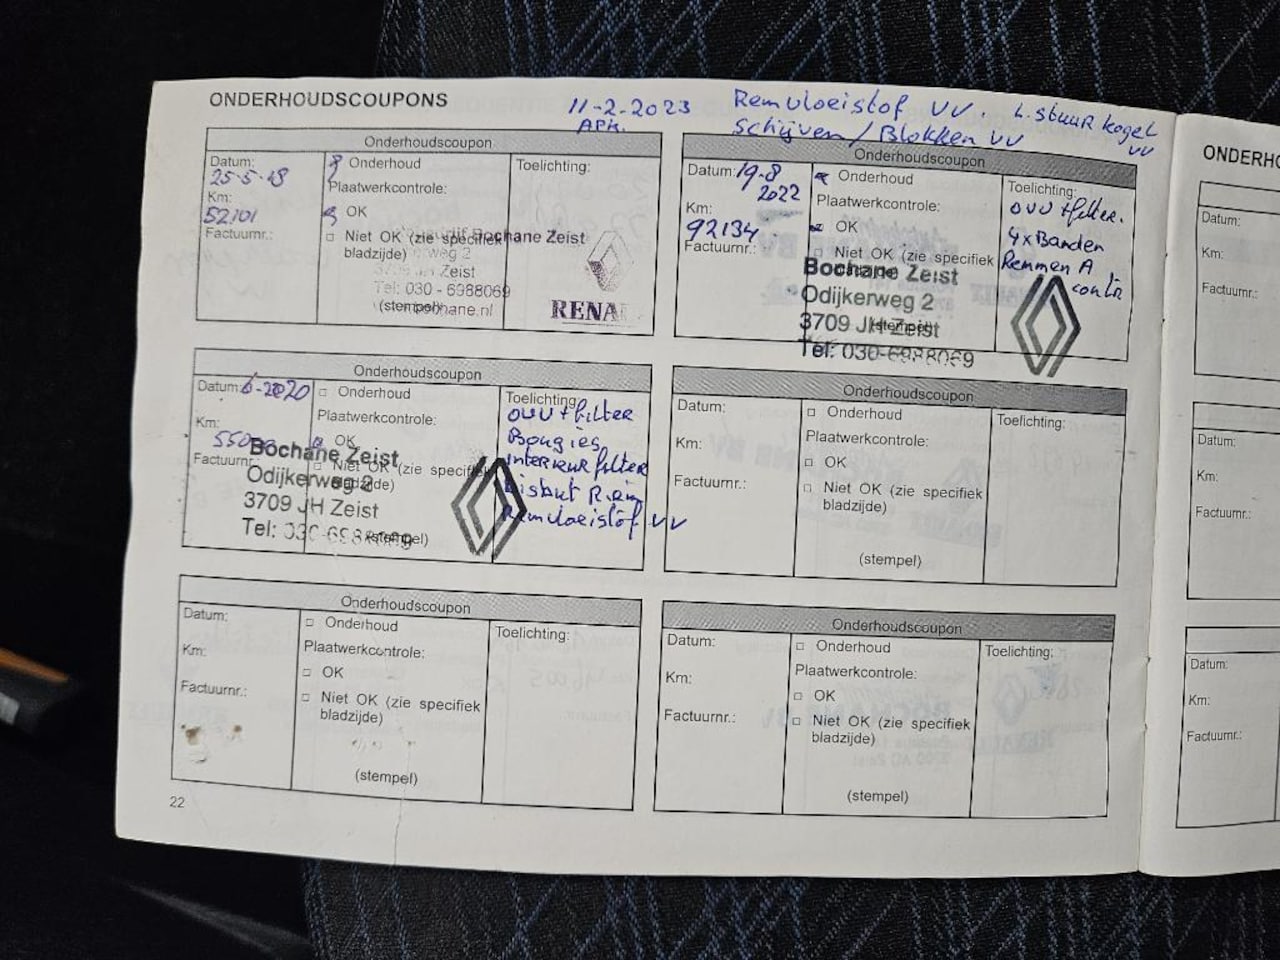 ONDERHOUDSCOUPONS
11-2-2023
APK.
Remvloeistof VV. L. stuur kogel
Schijven / Blokken VV VV
Onderhoudscoupon
Datum:
25-5-18
Km:
52101
Factuurnr.:
Onderhoud
Plaatwerkcontrole:
OK
Niet OK (zie specifiek
bladzijde)
Bochane Zeist
weg 2
Zeist
Tel: 030 - 6988069
(stempel)
Toelichting:
RENA
Onderhoudscoupon
Datum: 19-8
2022
Km:
92134
Factuurnr.:
Onderhoud
Plaatwerkcontrole:
OK
Niet OK (zie specifiek
Bochane Zeist
Odijkerweg 2
3709 JH Zeist
(stempel)
Tel: 030-6988069
Toelichting:
OVV + filter.
4x Banden
Remmen A
contr
Onderhoudscoupon
Datum: 6-2020
Km:
Factuurnr.:
Onderhoud
Plaatwerkcontrole:
OK
Niet OK (zie specifiek
bladzijde)
Bochane Zeist
Odijkerweg 2
3709 JH Zeist
Tel: 030-6988069
(stempel)
Toelichting:
OVV + filter
Bougies
interieur filter
Remvloeistof VV
Onderhoudscoupon
Datum:
Km:
Factuurnr.:
Onderhoud
Plaatwerkcontrole:
OK
Niet OK (zie specifiek
bladzijde)
(stempel)
Toelichting:
Onderhoudscoupon
Datum:
Km:
Factuurnr.:
Onderhoud
Plaatwerkcontrole:
OK
Niet OK (zie specifiek
bladzijde)
(stempel)
Toelichting:
Onderhoudscoupon
Datum:
Km:
Factuurnr.:
Onderhoud
Plaatwerkcontrole:
OK
Niet OK (zie specifiek
bladzijde)
(stempel)
Toelichting:
22
ONDERHO
Datum:
Km:
Factuurnr.:
Datum:
Km:
Factuurnr.:
Datum:
Km:
Factuurnr.: